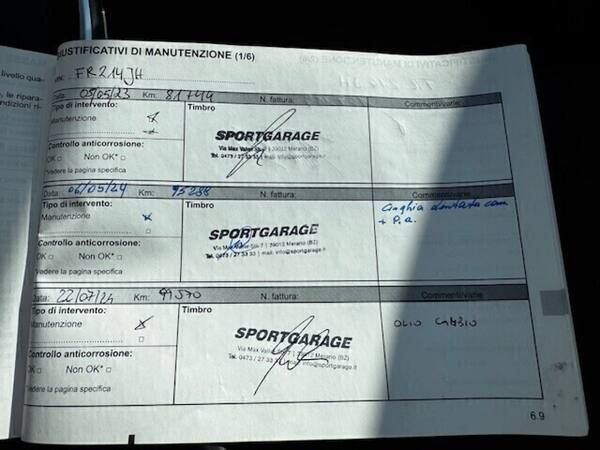 GIUSTIFICATIVI DI MANUTENZIONE (1/6)
VIN: FR214JH
Data: 05/05/23 Km: 81744 N. fattura: Commenti/varie
Tipo di intervento: Timbro
Manutenzione
SPORTGARAGE
Via Max Valier Str. 7 | 39012 Merano (BZ)
Tel. 0473 / 27 33 33 | mail: info@sportgarage.it
Controllo anticorrosione:
OK □ Non OK* □
*Vedere la pagina specifica
Data: 06/05/24 Km: 95288 N. fattura: Commenti/varie
Tipo di intervento: Timbro
Manutenzione
Cinghia dentata com
+ P.a.
SPORTGARAGE
Via Max Valier Str. 7 | 39012 Merano (BZ)
Tel. 0473 / 27 33 33 | mail: info@sportgarage.it
Controllo anticorrosione:
OK □ Non OK* □
*Vedere la pagina specifica
Data: 22/07/24 Km: 99570 N. fattura: Commenti/varie
Tipo di intervento: Timbro
Manutenzione
OLIO CAMBIO
SPORTGARAGE
Via Max Valier Str. 7 | 39012 Merano (BZ)
Tel. 0473 / 27 33 33 | mail: info@sportgarage.it
Controllo anticorrosione:
OK □ Non OK* □
*Vedere la pagina specifica
6.9
livello qua-
, le ripara-
ndizioni ri-